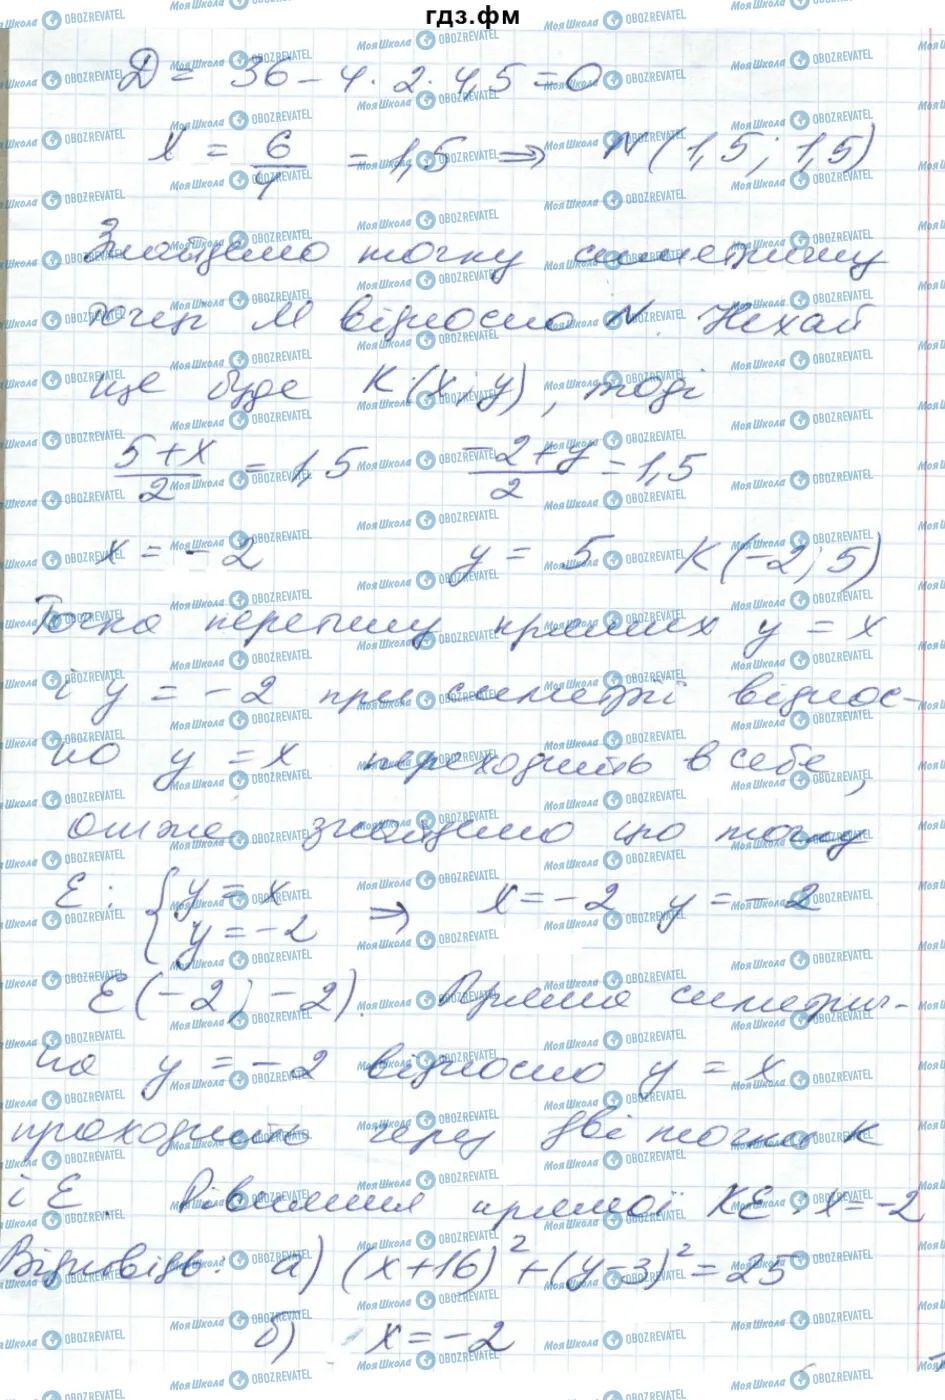 гдз.фм
D = 36 - 4 · 2 · 4,5 = 0
x = 6/4 = 1,5 ⇒ N(1,5; 1,5)
Знайдемо точку симетричну
точці M відносно N. Нехай
це буде K(x; y), тоді
(5+x)/2 = 1,5 (-2+y)/2 = 1,5
x = -2 y = 5 K(-2; 5)
Точка перетину прямих y = x
і y = -2 при симетрії віднос-
но y = x переходить в себе,
отже знайдемо цю точку
E: { y = x y = -2 ⇒ x = -2 y = -2
E(-2; -2). Пряма симетрич-
на y = -2 відносно y = x
проходить через дві точки K
і E. Рівняння прямої KE: x = -2
Відповідь: а) (x+16)² + (y-3)² = 25
б) x = -2
МояШкола OBOZREVATEL